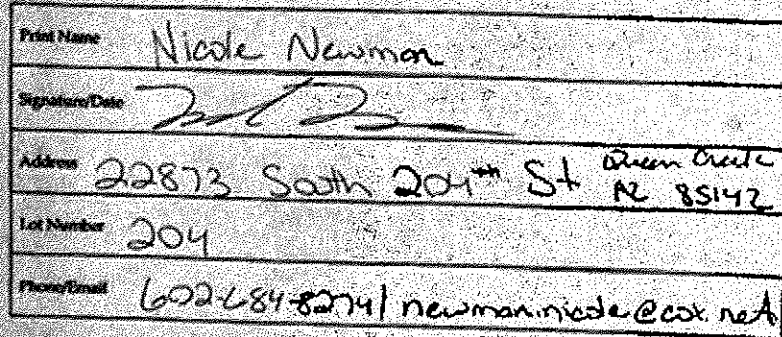 Print Name Nicole Newman
Signature/Date
Address 22873 South 204th St Queen Creek
AZ 85142
Lot Number 204
Phone/Email 602-684-8274 / newman.nicole@cox.net